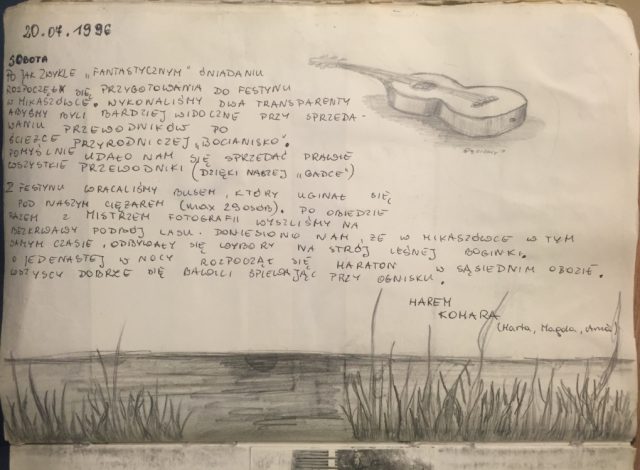 20.07.1996
SOBOTA
PO JAK ZWYKLE „FANTASTYCZNYM" ŚNIADANIU
ROZPOCZĘŁY SIĘ PRZYGOTOWANIA DO FESTYNU
W MIKASZÓWCE. WYKONALIŚMY DWA TRANSPARENTY
ABYŚMY BYLI BARDZIEJ WIDOCZNE PRZY SPRZEDA-
WANIU PRZEWODNIKÓW PO
ŚCIEŻCE PRZYRODNICZEJ „BOCIANISKO".
POMYŚLNIE UDAŁO NAM SIĘ SPRZEDAĆ PRAWIE
WSZYSTKIE PRZEWODNIKI (DZIĘKI NASZEJ „GADCE")
Z FESTYNU WRACALIŚMY BUSEM, KTÓRY UGINAŁ SIĘ
POD NASZYM CIĘŻAREM (MAX 29 OSÓB). PO OBIEDZIE
RAZEM Z MISTRZEM FOTOGRAFII WYSZLIŚMY NA
BEZKRWAWY PODBÓJ LASU. DONIESIONO NAM, ŻE W MIKASZÓWCE W TYM
SAMYM CZASIE, ODBYWAŁY SIĘ WYBORY NA STRÓJ LEŚNEJ BOGINKI.
O JEDENASTEJ W NOCY ROZPOCZĄŁ SIĘ MARATON W SĄSIEDNIM OBOZIE.
WSZYSCY DOBRZE SIĘ BAWILI ŚPIEWAJĄC PRZY OGNISKU.
HAREM
KOMARA
(Marta, Magda, Ania)